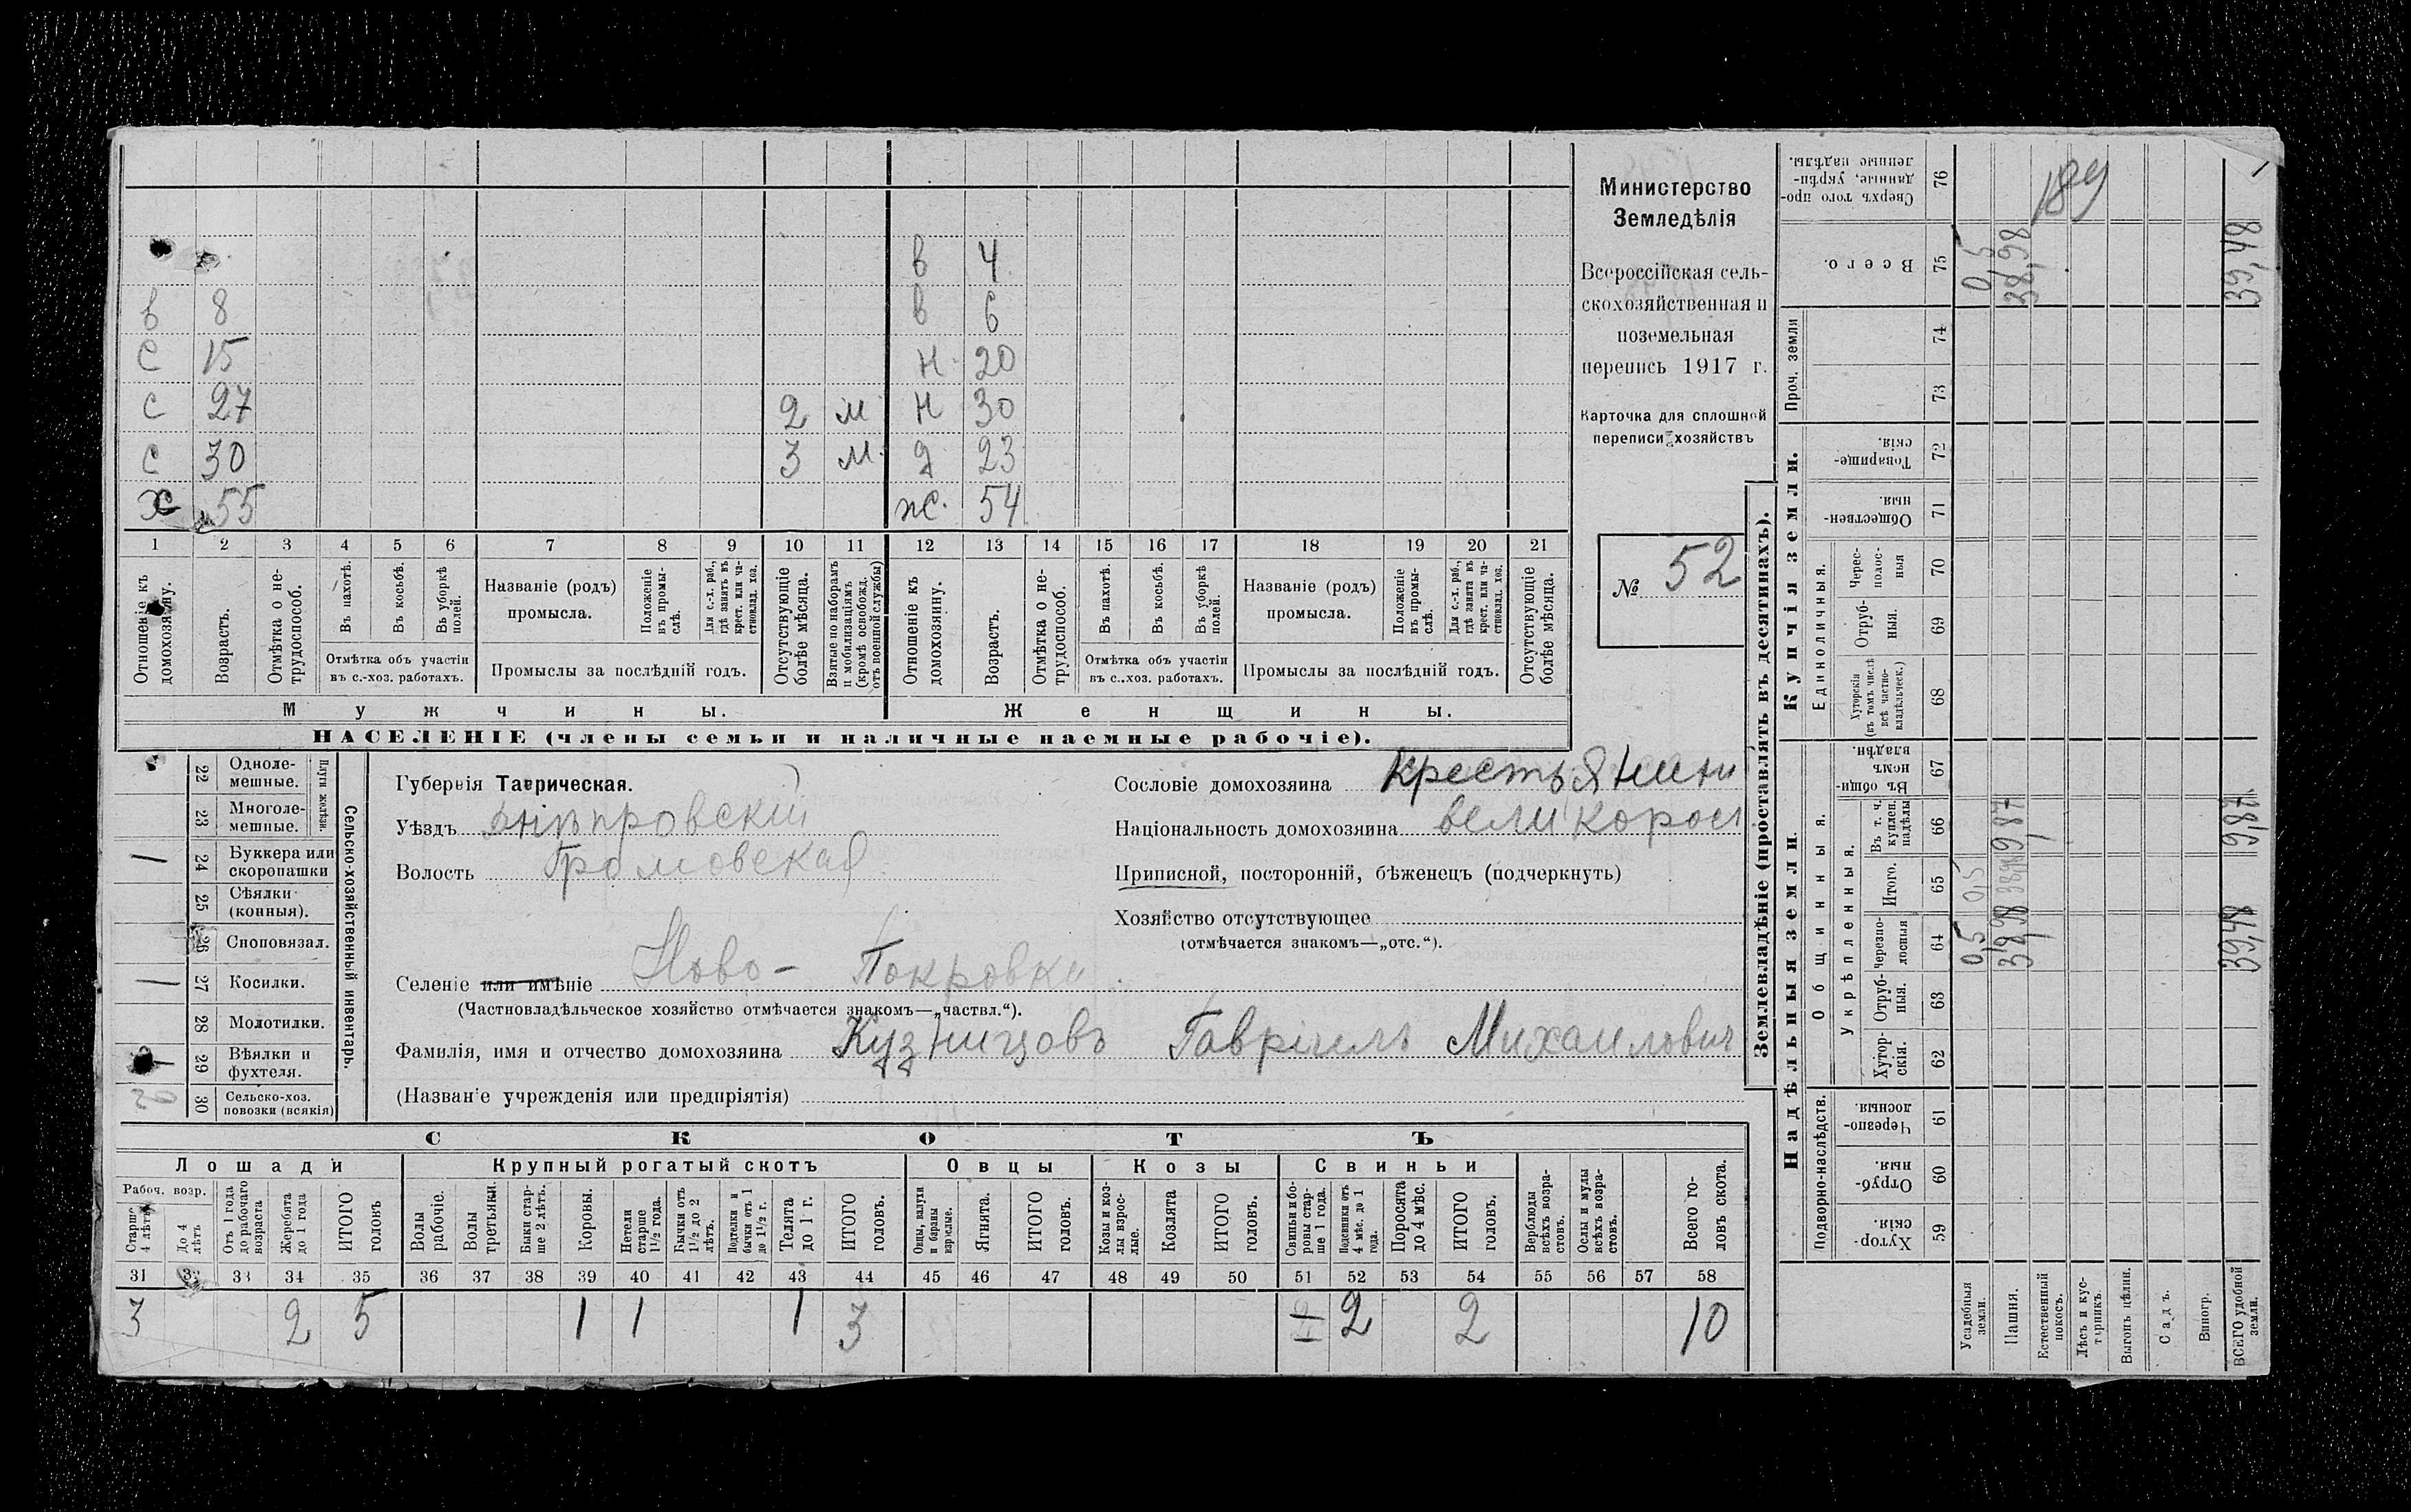 в 4
в 8 в 6
С 15 Н 20
с 27 2 м Н 30
с 30 3 м. д 23
х 55 ж. 54
1 2 3 4 5 6 7 8 9 10 11 12 13 14 15 16 17 18 19 20 21
Отношеніе къ домохозяину.
Возрастъ.
Отмѣтка о не-трудоспособ.
Въ пахотѣ.
Въ косьбѣ.
Въ уборкѣ полей.
Отмѣтка объ участіи
въ с.-хоз. работахъ.
Названіе (родъ)
промысла.
Положеніе въ промы-слѣ.
Для с.-х. раб., гдѣ занятъ въ крест. или ча-стновлад. хоз.
Промыслы за послѣдній годъ.
Отсутствующіе болѣе мѣсяца.
Взятые по наборамъ и мобилизаціямъ (кромѣ освобожд. отъ военной службы)
Отношеніе къ домохозяину.
Возрастъ.
Отмѣтка о не-трудоспособ.
Въ пахотѣ.
Въ косьбѣ.
Въ уборкѣ полей.
Отмѣтка объ участіи
въ с.-хоз. работахъ.
Названіе (родъ)
промысла.
Положеніе въ промы-слѣ.
Для с.-х. раб., гдѣ занята въ крест. или ча-стновлад. хоз.
Промыслы за послѣдній годъ.
Отсутствующіе болѣе мѣсяца.
Мужчины. Женщины.
НАСЕЛЕНІЕ (члены семьи и наличные наемные рабочіе).
Министерство
Земледѣлія
Всероссійская сель-
скохозяйственная и
поземельная
перепись 1917 г.
Карточка для сплошной
переписи хозяйствъ
№ 52
22 Одноле-мешные.
23 Многоле-мешные.
Плуги желѣзн.
1 24 Буккера или скоропашки
25 Сѣялки (конныя).
26 Сноповязал.
1 27 Косилки.
28 Молотилки.
1 29 Вѣялки и фухтеля.
20 30 Сельско-хоз. повозки (всякія)
Сельско-хозяйственный инвентарь.
Губернія Таврическая.
Уѣздъ Днѣпровскій
Волость Громовская
Селеніе или имѣніе Ново-Покровка
(Частновладѣльческое хозяйство отмѣчается знакомъ—„частвл.“).
Фамилія, имя и отчество домохозяина Кузницовъ Гавріилъ Михаилович
(Названіе учрежденія или предпріятія)
Сословіе домохозяина крестьянин
Національность домохозяина великорос
Приписной, посторонній, бѣженецъ (подчеркнуть)
Хозяйство отсутствующее
(отмѣчается знакомъ—„отс.“).
СКОТЪ
Лошади Крупный рогатый скотъ Овцы Козы Свиньи
Рабоч. возр.
Старше 4 лѣтъ
До 4 лѣтъ
Отъ 1 года до рабочаго возраста
Жеребята до 1 года
ИТОГО головъ
Волы рабочіе.
Волы третьяки.
Быки стар-ше 2 лѣтъ.
Коровы.
Нетели старше 1½ года.
Бычки отъ 1½ до 2 лѣтъ.
Подтелки и бычки отъ 1 до 1½ г.
Телята до 1 г.
ИТОГО головъ.
Овцы, валухи и бараны взрослые.
Ягнята.
ИТОГО головъ.
Козы и коз-лы взрос-лые.
Козлята
ИТОГО головъ.
Свиньи и бо-ровы стар-ше 1 года.
Подсвинки отъ 4 мѣс. до 1 года.
Поросята до 4 мѣс.
ИТОГО головъ.
Верблюды всѣхъ возра-стовъ.
Ослы и мулы всѣхъ возра-стовъ.
Всего го-ловъ скота.
31 32 33 34 35 36 37 38 39 40 41 42 43 44 45 46 47 48 49 50 51 52 53 54 55 56 57 58
3 2 5 1 1 1 3 2 2 10
Землевладѣніе (проставлять въ десятинахъ).
Надѣльныя земли. Купчія земли.
Подворно-наслѣдств. Общинныя. Единоличныя. Проч. земли
Укрѣпленныя.
Хутор-скія. 59
Отруб-ныя. 60
Черезпо-лосныя. 61
Хутор-скія. 62
Отруб-ныя. 63
Черезпо-лосныя 64
Итого. 65
Въ т. ч. куплен. надѣлы 66
Въ общи-номъ владѣн. 67
Хуторскія (въ томъ числѣ всѣ частно-владѣльческ.) 68
Отруб-ныя 69
Черес-полос-ныя 70
Обществен-ныя. 71
Товарище-скія. 72
73
74
Всего. 75
Сверхъ того про-данные, укрѣп-ленные надѣлы. 76
Усадебныя земли. 0,5 0,5 0,5
Пашня. 38,98 38,98 9,87 38,98
Естественный покосъ.
189
Лѣсъ и кус-тарникъ.
Выгонъ цѣлин.
Садъ.
Виногр.
ВСЕГО удобной земли. 39,48 9,87 39,48